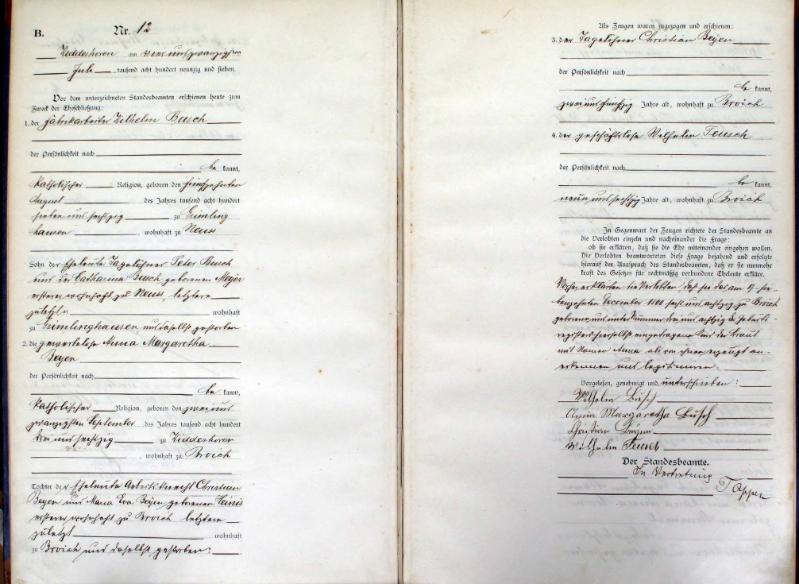 B.
Nr. 12
am
Juli tausend acht hundert neunzig und sieben.
Vor dem unterzeichneten Standesbeamten erschienen heute zum
Zweck der Eheschließung:
1. der Fabrikarbeiter Wilhelm Busch
der Persönlichkeit nach
be kannt,
katholischer Religion, geboren den fünfzehnten
August des Jahres tausend acht hundert
sieben und sechzig zu Grimling
hausen, wohnhaft zu Neuss
Sohn der Eheleute Tagelöhner Peter Busch
und der Catharina Busch geborenen
ersterer wohnhaft zu Neuss, letztere
zuletzt wohnhaft
zu Grimlinghausen und daselbst gestorben
2. die gewerbelose Anna Margaretha
Beyen
der Persönlichkeit nach
be kannt,
katholischer Religion, geboren den zwei und
zwanzigsten September des Jahres tausend acht hundert
drei und sechzig zu
, wohnhaft zu Broich
Tochter der Eheleute Christian
Beyen und Maria Eva Beyen geborenen
ersterer wohnhaft zu Broich letztere
zuletzt wohnhaft
zu Broich und daselbst gestorben.
Als Zeugen waren zugezogen und erschienen:
3. der Tagelöhner Christian Beyen
der Persönlichkeit nach
be kannt,
zwei und fünfzig Jahre alt, wohnhaft zu Broich
4. der geschäftslose Wilhelm Teusch
der Persönlichkeit nach
be kannt,
neun und sechzig Jahre alt, wohnhaft zu Broich
In Gegenwart der Zeugen richtete der Standesbeamte an
die Verlobten einzeln und nacheinander die Frage:
ob sie erklären, daß sie die Ehe miteinander eingehen wollen.
Die Verlobten beantworteten diese Frage bejahend und erfolgte
hierauf der Ausspruch des Standesbeamten, daß er sie nunmehr
kraft des Gesetzes für rechtmäßig verbundene Eheleute erkläre.
erklärten die Verlobten, daß sie das am
Dezember 1886 zu Broich
geborene und unter Nummer drei und achtzig des Geburts-
registers hierselbst eingetragene Kind der Braut
mit Namen Anna als von ihnen erzeugt an-
erkennen und legitimieren.
Vorgelesen, genehmigt und unterschrieben:
Wilhelm Busch
Anna Margaretha Busch
Christian Beyen
Wilhelm Teusch
Der Standesbeamte.
In Vertretung